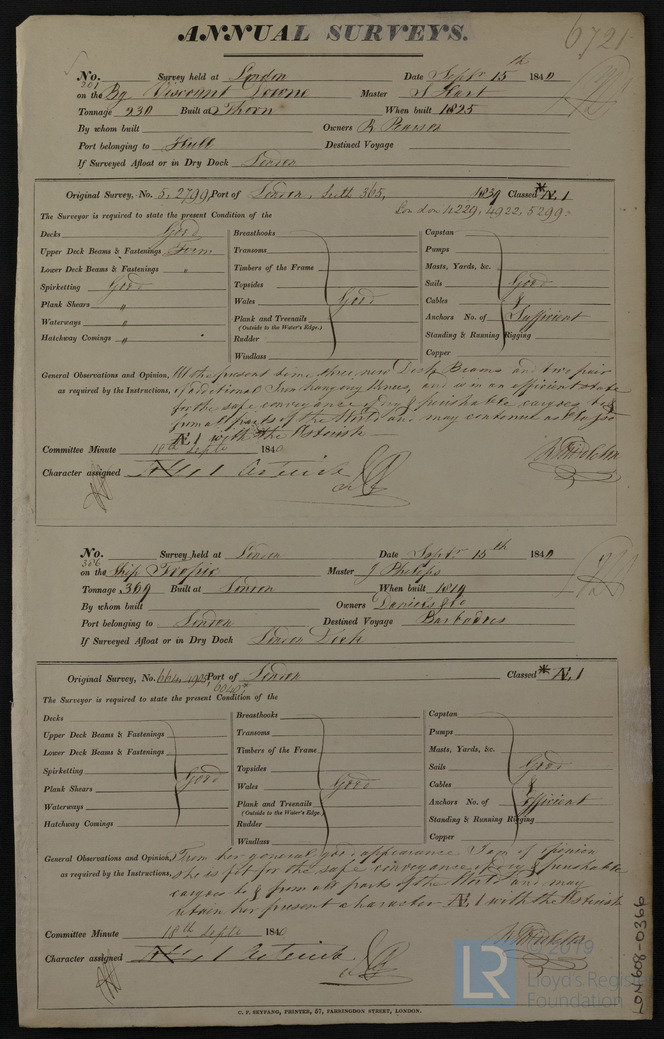 ANNUAL SURVEYS.
6721
No. Survey held at London Date Septr 15th 1840
201
on the Bg Viscount Downe Master S Hart
Tonnage 230 Built at Thorn When built 1825
By whom built Owners R Pearson
Port belonging to Hull Destined Voyage
If Surveyed Afloat or in Dry Doch London
Original Survey, No. 5, 2799, Port of London, Leith 365, 1839 Classed * Æ 1
London 4229, 4922, 5299.
The Surveyor is required to state the present Condition of the
Decks Good Breasthooks Capstan
Upper Deck Beams & Fastenings Firm Transoms Pumps
Lower Deck Beams & Fastenings " Timbers of the Frame Masts, Yards, &c.
Spirketting Good Topsides Sails Good
Plank Shears " Wales Good Cables &
Waterways " Plank and Treenails Anchors No. of Sufficient
(Outside to the Water's Edge.)
Hatchway Comings " Rudder Standing & Running Rigging
Windlass Copper
General Observations and Opinion, At the present some three new Deck Beams and two pair
as required by the Instructions, of additional Iron hanging Knees, and is in an efficient state
for the safe conveyance of dry & perishable cargoes to &
from all parts of the World and may continue as
Æ 1 with the Asterisk
Committee Minute 18th Septr 1840
Character assigned Æ 1 Asterisk
No. Survey held at London Date Septr 15th 1840
386
on the Ship Tropic Master J Phelips
Tonnage 369 Built at London When built 1819
By whom built Owners Daniels & Co
Port belonging to London Destined Voyage Barbadoes
If Surveyed Afloat or in Dry Doch London Dock
Original Survey, No. Port of London Classed * Æ 1
The Surveyor is required to state the present Condition of the
Decks Breasthooks Capstan
Upper Deck Beams & Fastenings Transoms Pumps
Lower Deck Beams & Fastenings Timbers of the Frame Masts, Yards, &c.
Spirketting Good Topsides Sails Good
Plank Shears Wales Good Cables &
Waterways Plank and Treenails Anchors No. of Sufficient
(Outside to the Water's Edge.)
Hatchway Comings Rudder Standing & Running Rigging
Windlass Copper
General Observations and Opinion, From her general good appearance I am of opinion
as required by the Instructions, she is fit for the safe conveyance of dry & perishable
cargoes to & from all parts of the World and may
retain her present character Æ 1 with the Asterisk
Committee Minute 18th Septr 1840
Character assigned Æ 1 Asterisk
C. F. SEYFANG, PRINTER, 57, FARRINGDON STREET, LONDON.
LON608-0366
LR
©2019
Lloyd's Register
Foundation